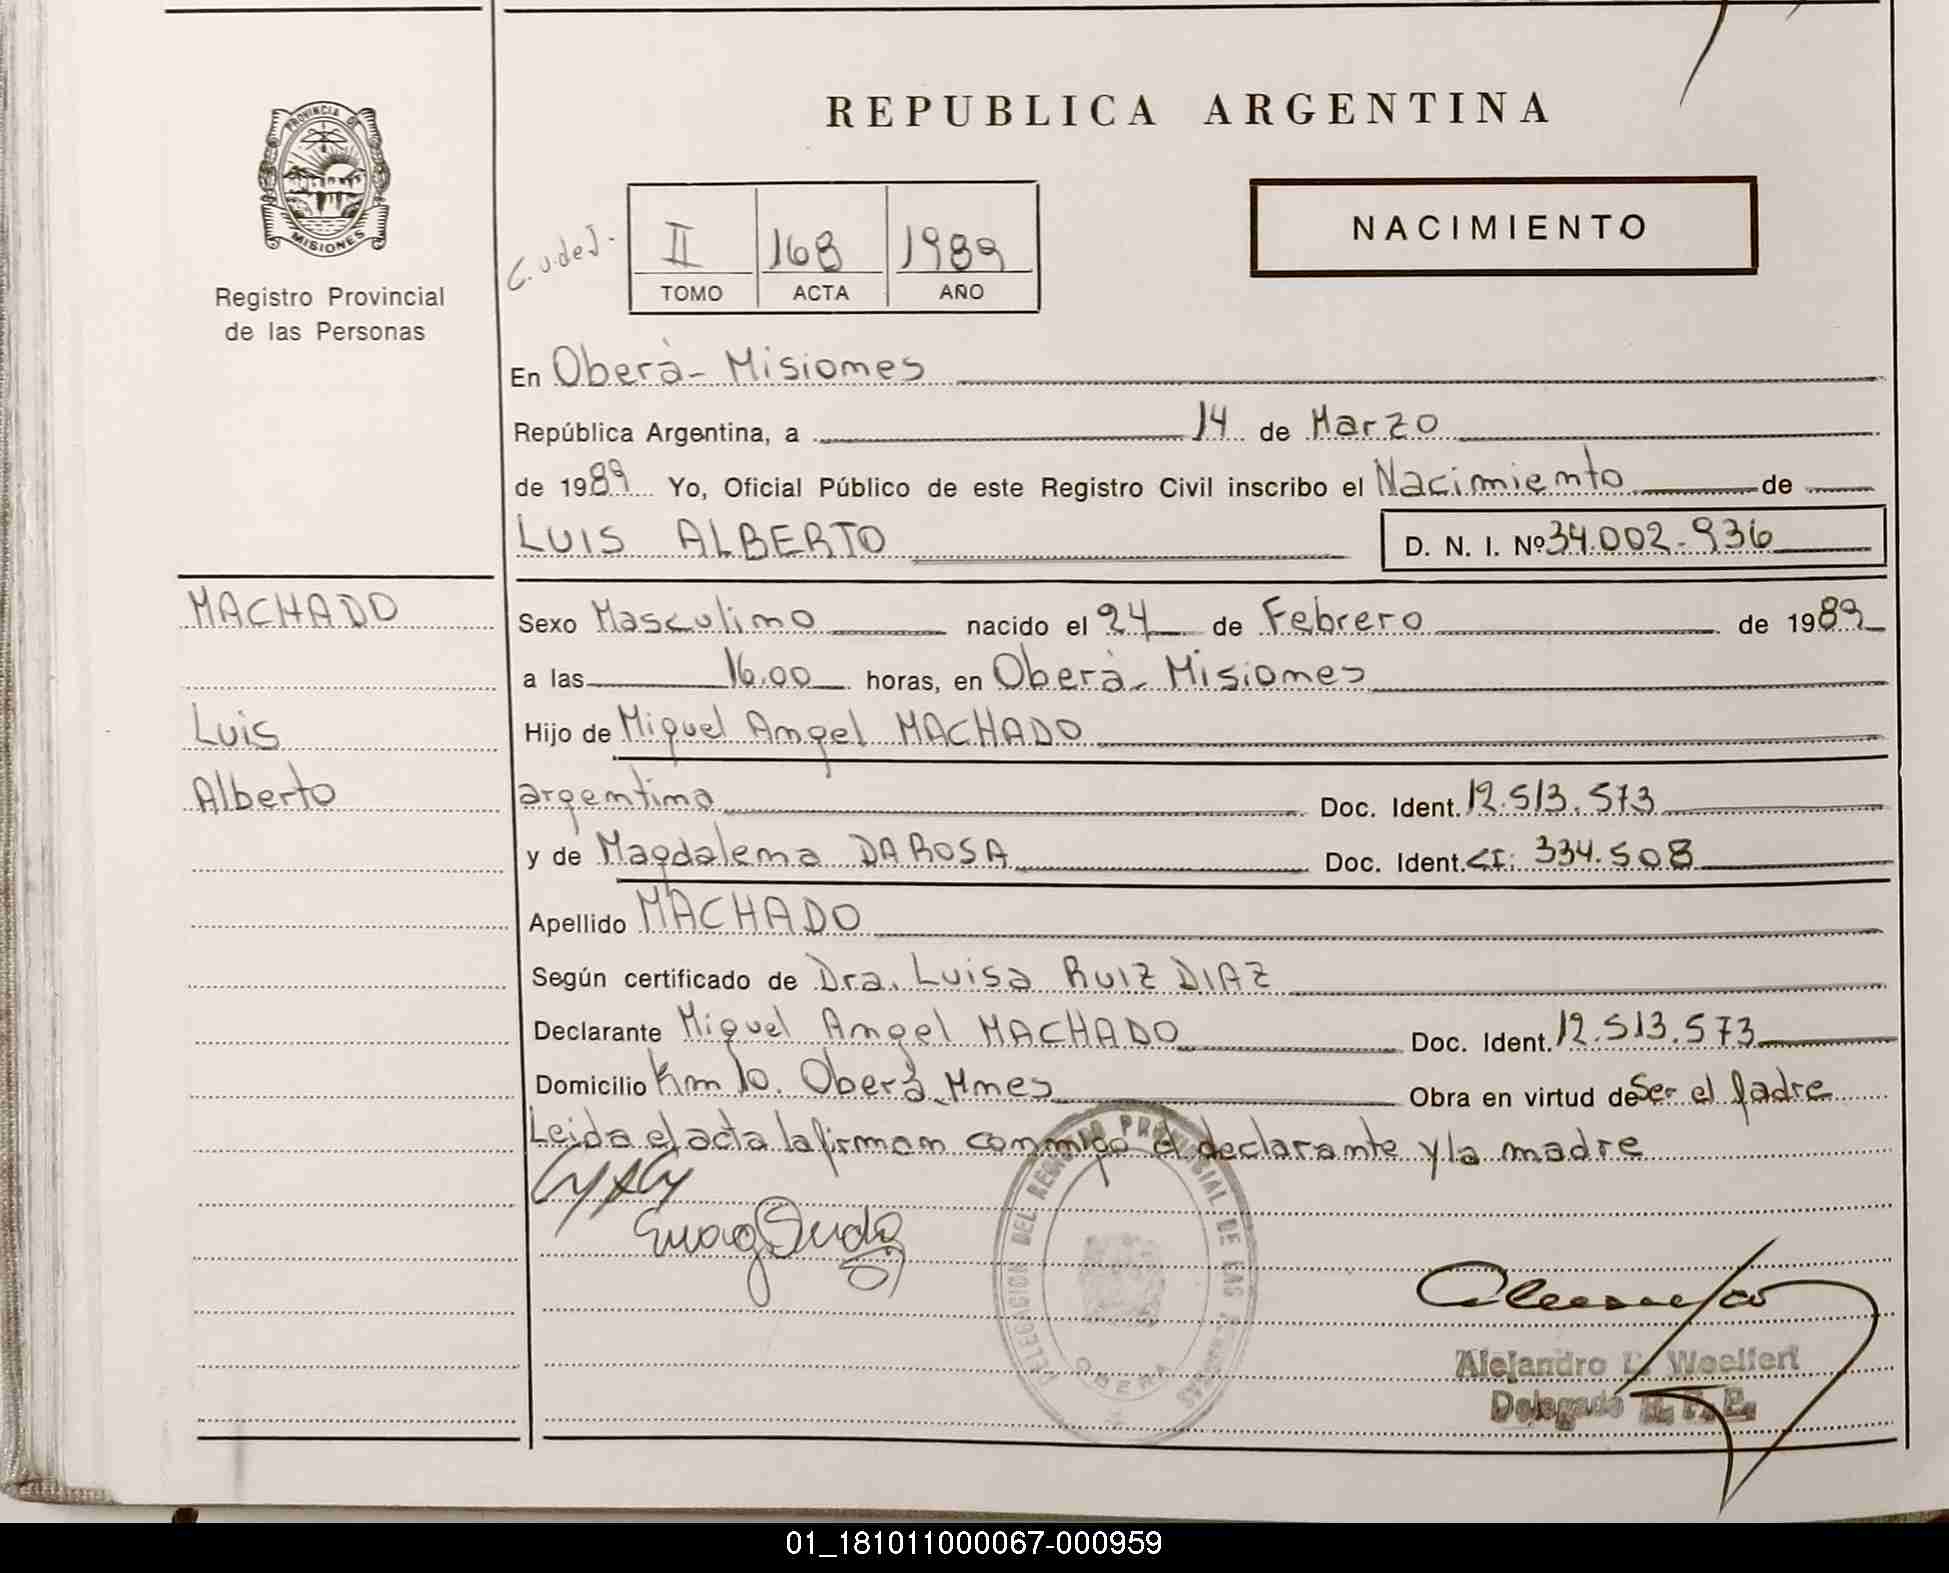 REPUBLICA ARGENTINA
PROVINCIA DE
MISIONES
Registro Provincial
de las Personas
C. U. de J.
II 168 1989
TOMO ACTA AÑO
NACIMIENTO
En Oberá - Misiones
República Argentina, a 14 de Marzo
de 1989 Yo, Oficial Público de este Registro Civil inscribo el Nacimiento de
LUIS ALBERTO D. N. I. Nº 34.002.936
MACHADO
Luis
Alberto
Sexo Masculino nacido el 24 de Febrero de 1989
a las 16.00 horas, en Oberá - Misiones
Hijo de Miguel Angel MACHADO
argentino Doc. Ident. 12.513.573
y de Magdalena DA ROSA Doc. Ident. CI: 334.508
Apellido MACHADO
Según certificado de Dra. Luisa RUIZ DIAZ
Declarante Miguel Angel MACHADO Doc. Ident. 12.513.573
Domicilio Km 10. Oberá Mnes Obra en virtud de Ser el padre
Leida el acta la firman conmigo el declarante y la madre
DELEGACION DEL REGISTRO PROVINCIAL DE LAS PERSONAS
OBERA
Alejandro Woelfert
Delegado
01_181011000067-000959